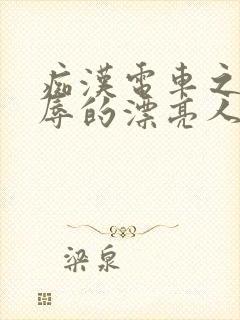 痴漢電車之
辱的漂亮人
梁泉